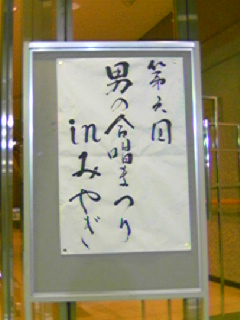 第六回
男の合唱まつり
inみやぎ